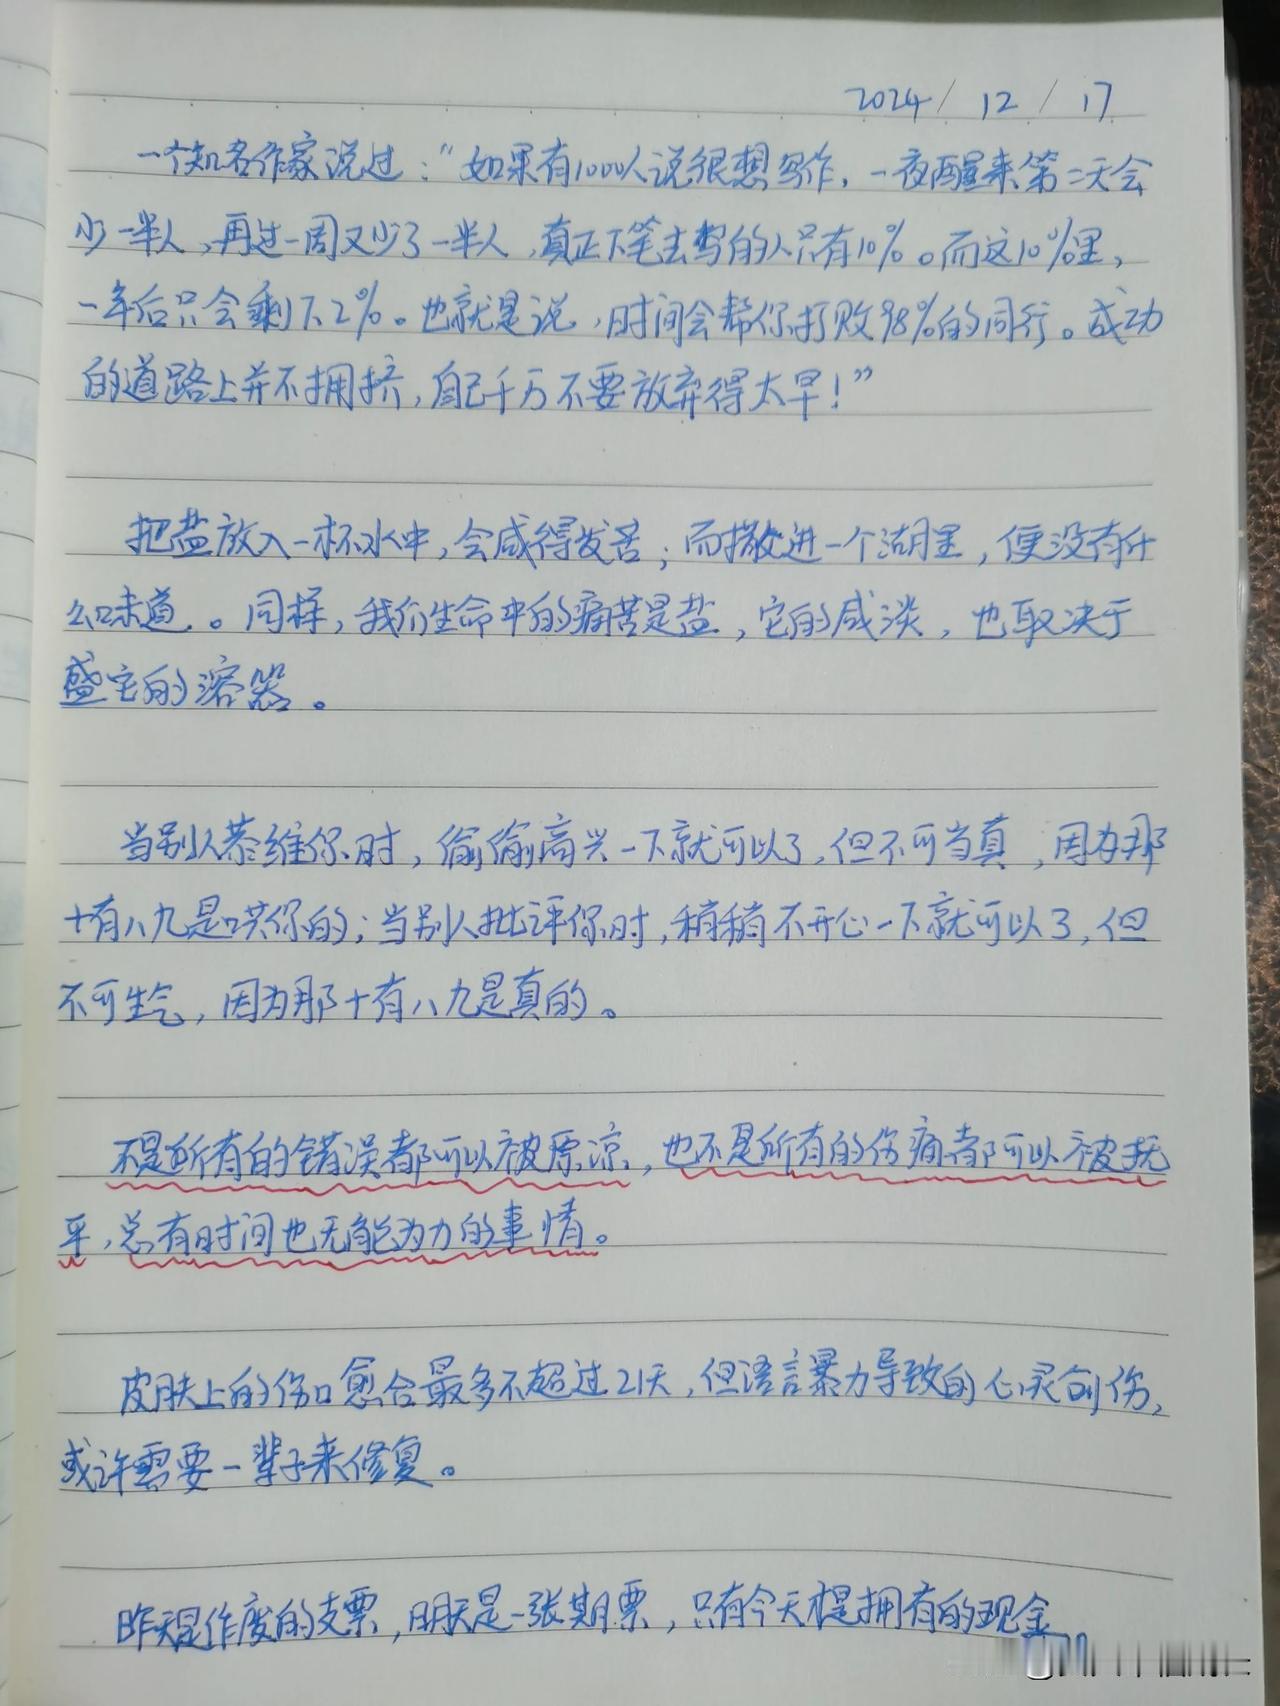 2024/12/17
一个知名作家说过：“如果有1000人说很想写作，一夜醒来第二天会
少一半人，再过一周又少了一半人，真正下笔去写的人只有10%。而这10%里，
一年后只会剩下2%。也就是说，时间会帮你打败98%的同行。成功
的道路上并不拥挤，自己千万不要放弃得太早！”
把盐放入一杯水中，会咸得发苦；而撒进一个湖里，便没有什
么味道。同样，我们生命中的痛苦是盐，它的咸淡，也取决于
盛它的溶器。
当别人恭维你时，偷偷高兴一下就可以了，但不可当真，因为那
十有八九是哄你的；当别人批评你时，稍稍不开心一下就可以了，但
不可生气，因为那十有八九是真的。
不是所有的错误都可以被原凉，也不是所有的伤痛都可以被抚
平，总有时间也无能为力的事情。
皮肤上的伤口愈合最多不超过21天，但语言暴力导致的心灵创伤，
或许需要一辈子来修复。
昨天是作废的支票，明天是一张期票，只有今天才是拥有的现金